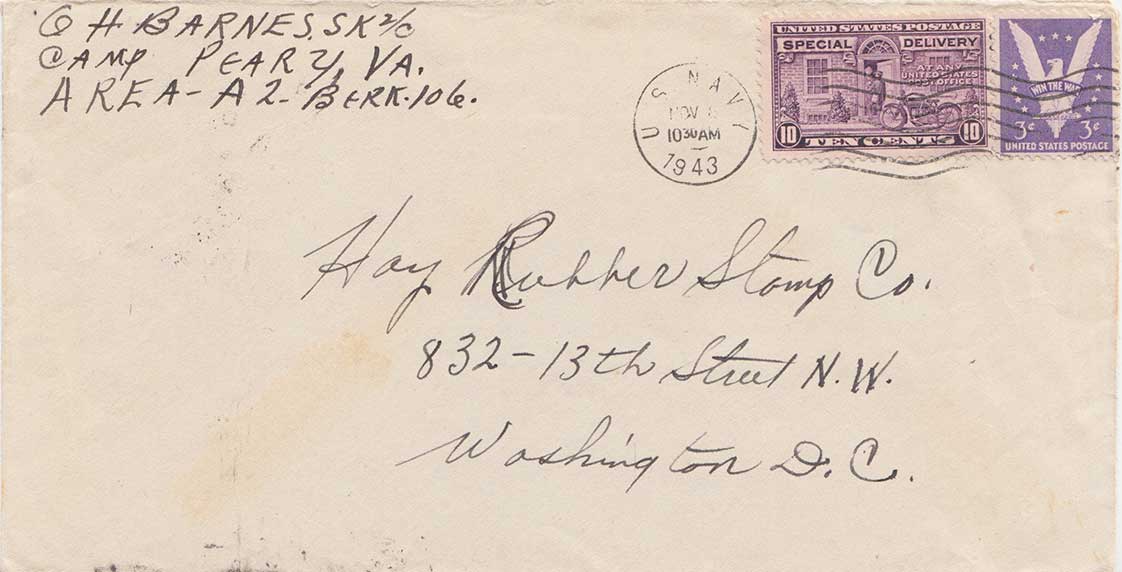 O H BARNES, SK 2/C
CAMP PEARY, VA.
AREA - A 2 - BERK. 106.
U S NAVY
NOV
10 30 AM
1943
UNITED STATES POSTAGE
SPECIAL DELIVERY
AT ANY
UNITED STATES
POST OFFICE
10 TEN CENTS 10
WIN THE WAR
3¢ 3¢
UNITED STATES POSTAGE
Hay Rubber Stamp Co.
832 - 13th Street N.W.
Washington D.C.